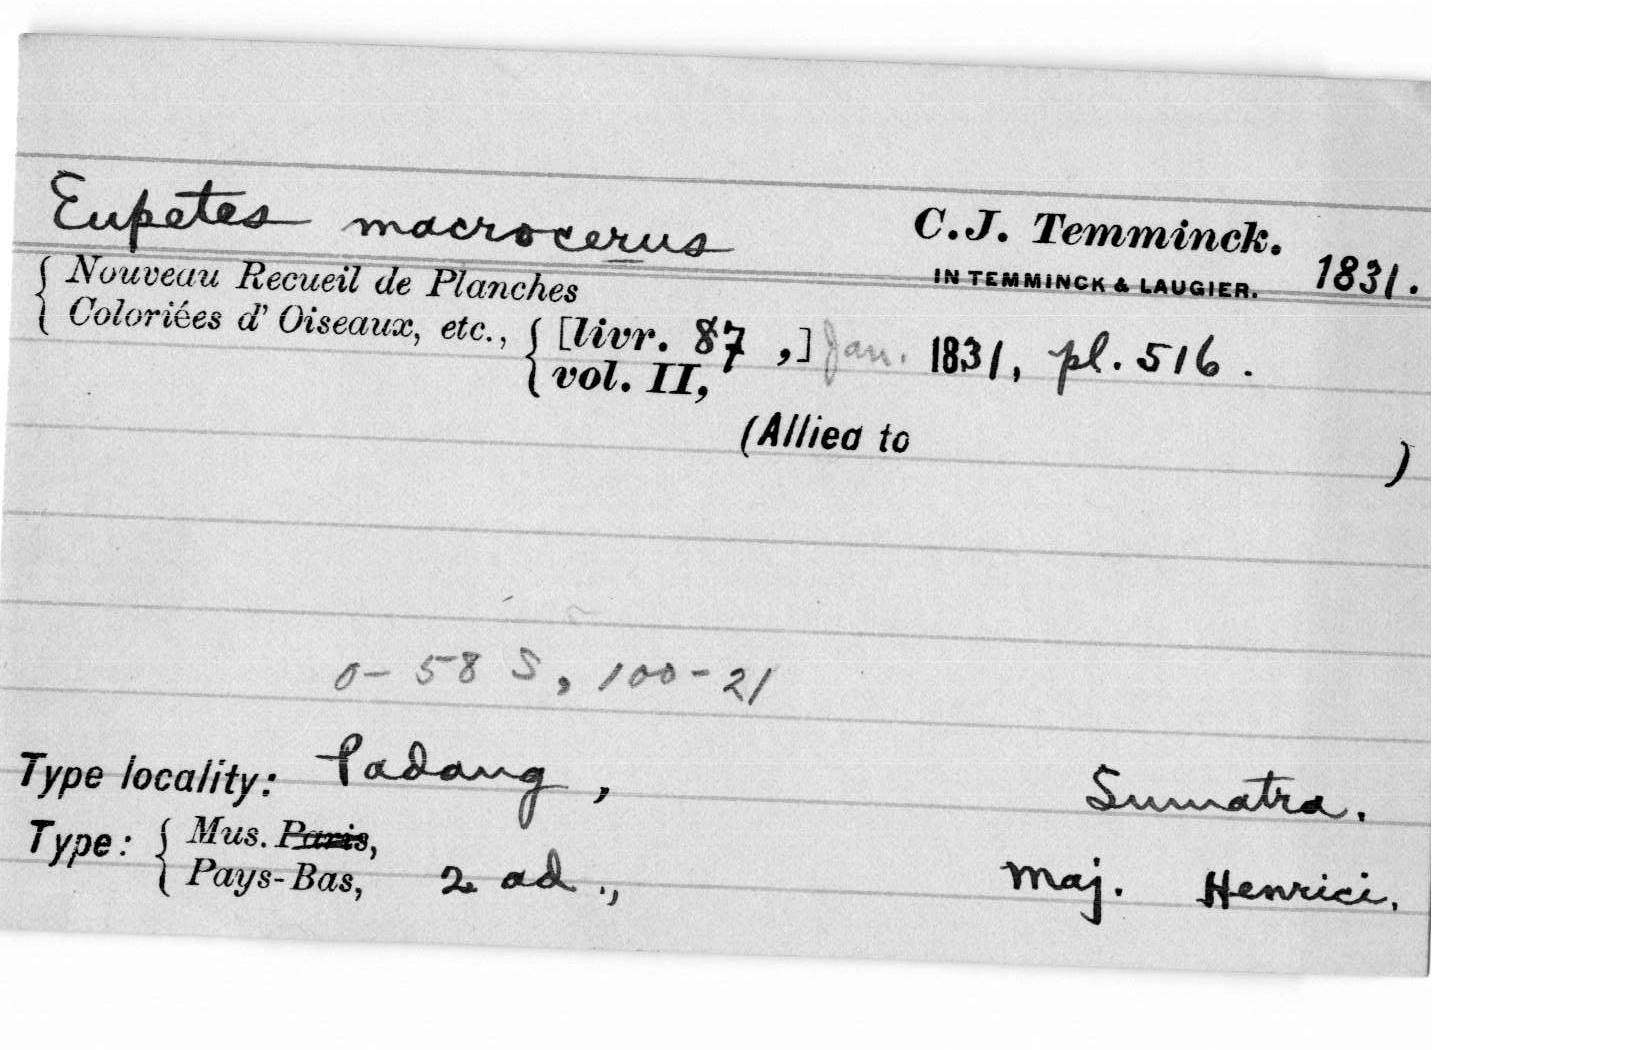 Eupetes macrocerus C.J. Temminck.
IN TEMMINCK & LAUGIER. 1831.
{ Nouveau Recueil de Planches
{ Coloriées d' Oiseaux, etc., { [livr. 87 ,] Jan. 1831, pl. 516.
{ vol. II,
(Allied to )
0-58 S, 100-21
Type locality: Padang, Sumatra.
Type: { Mus. Paris,
{ Pays-Bas, 2 ad., Maj. Henrici.